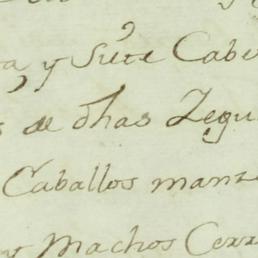 y Siete Cabe
de dhas Zegu
Caballos manz
y Machos Cerr